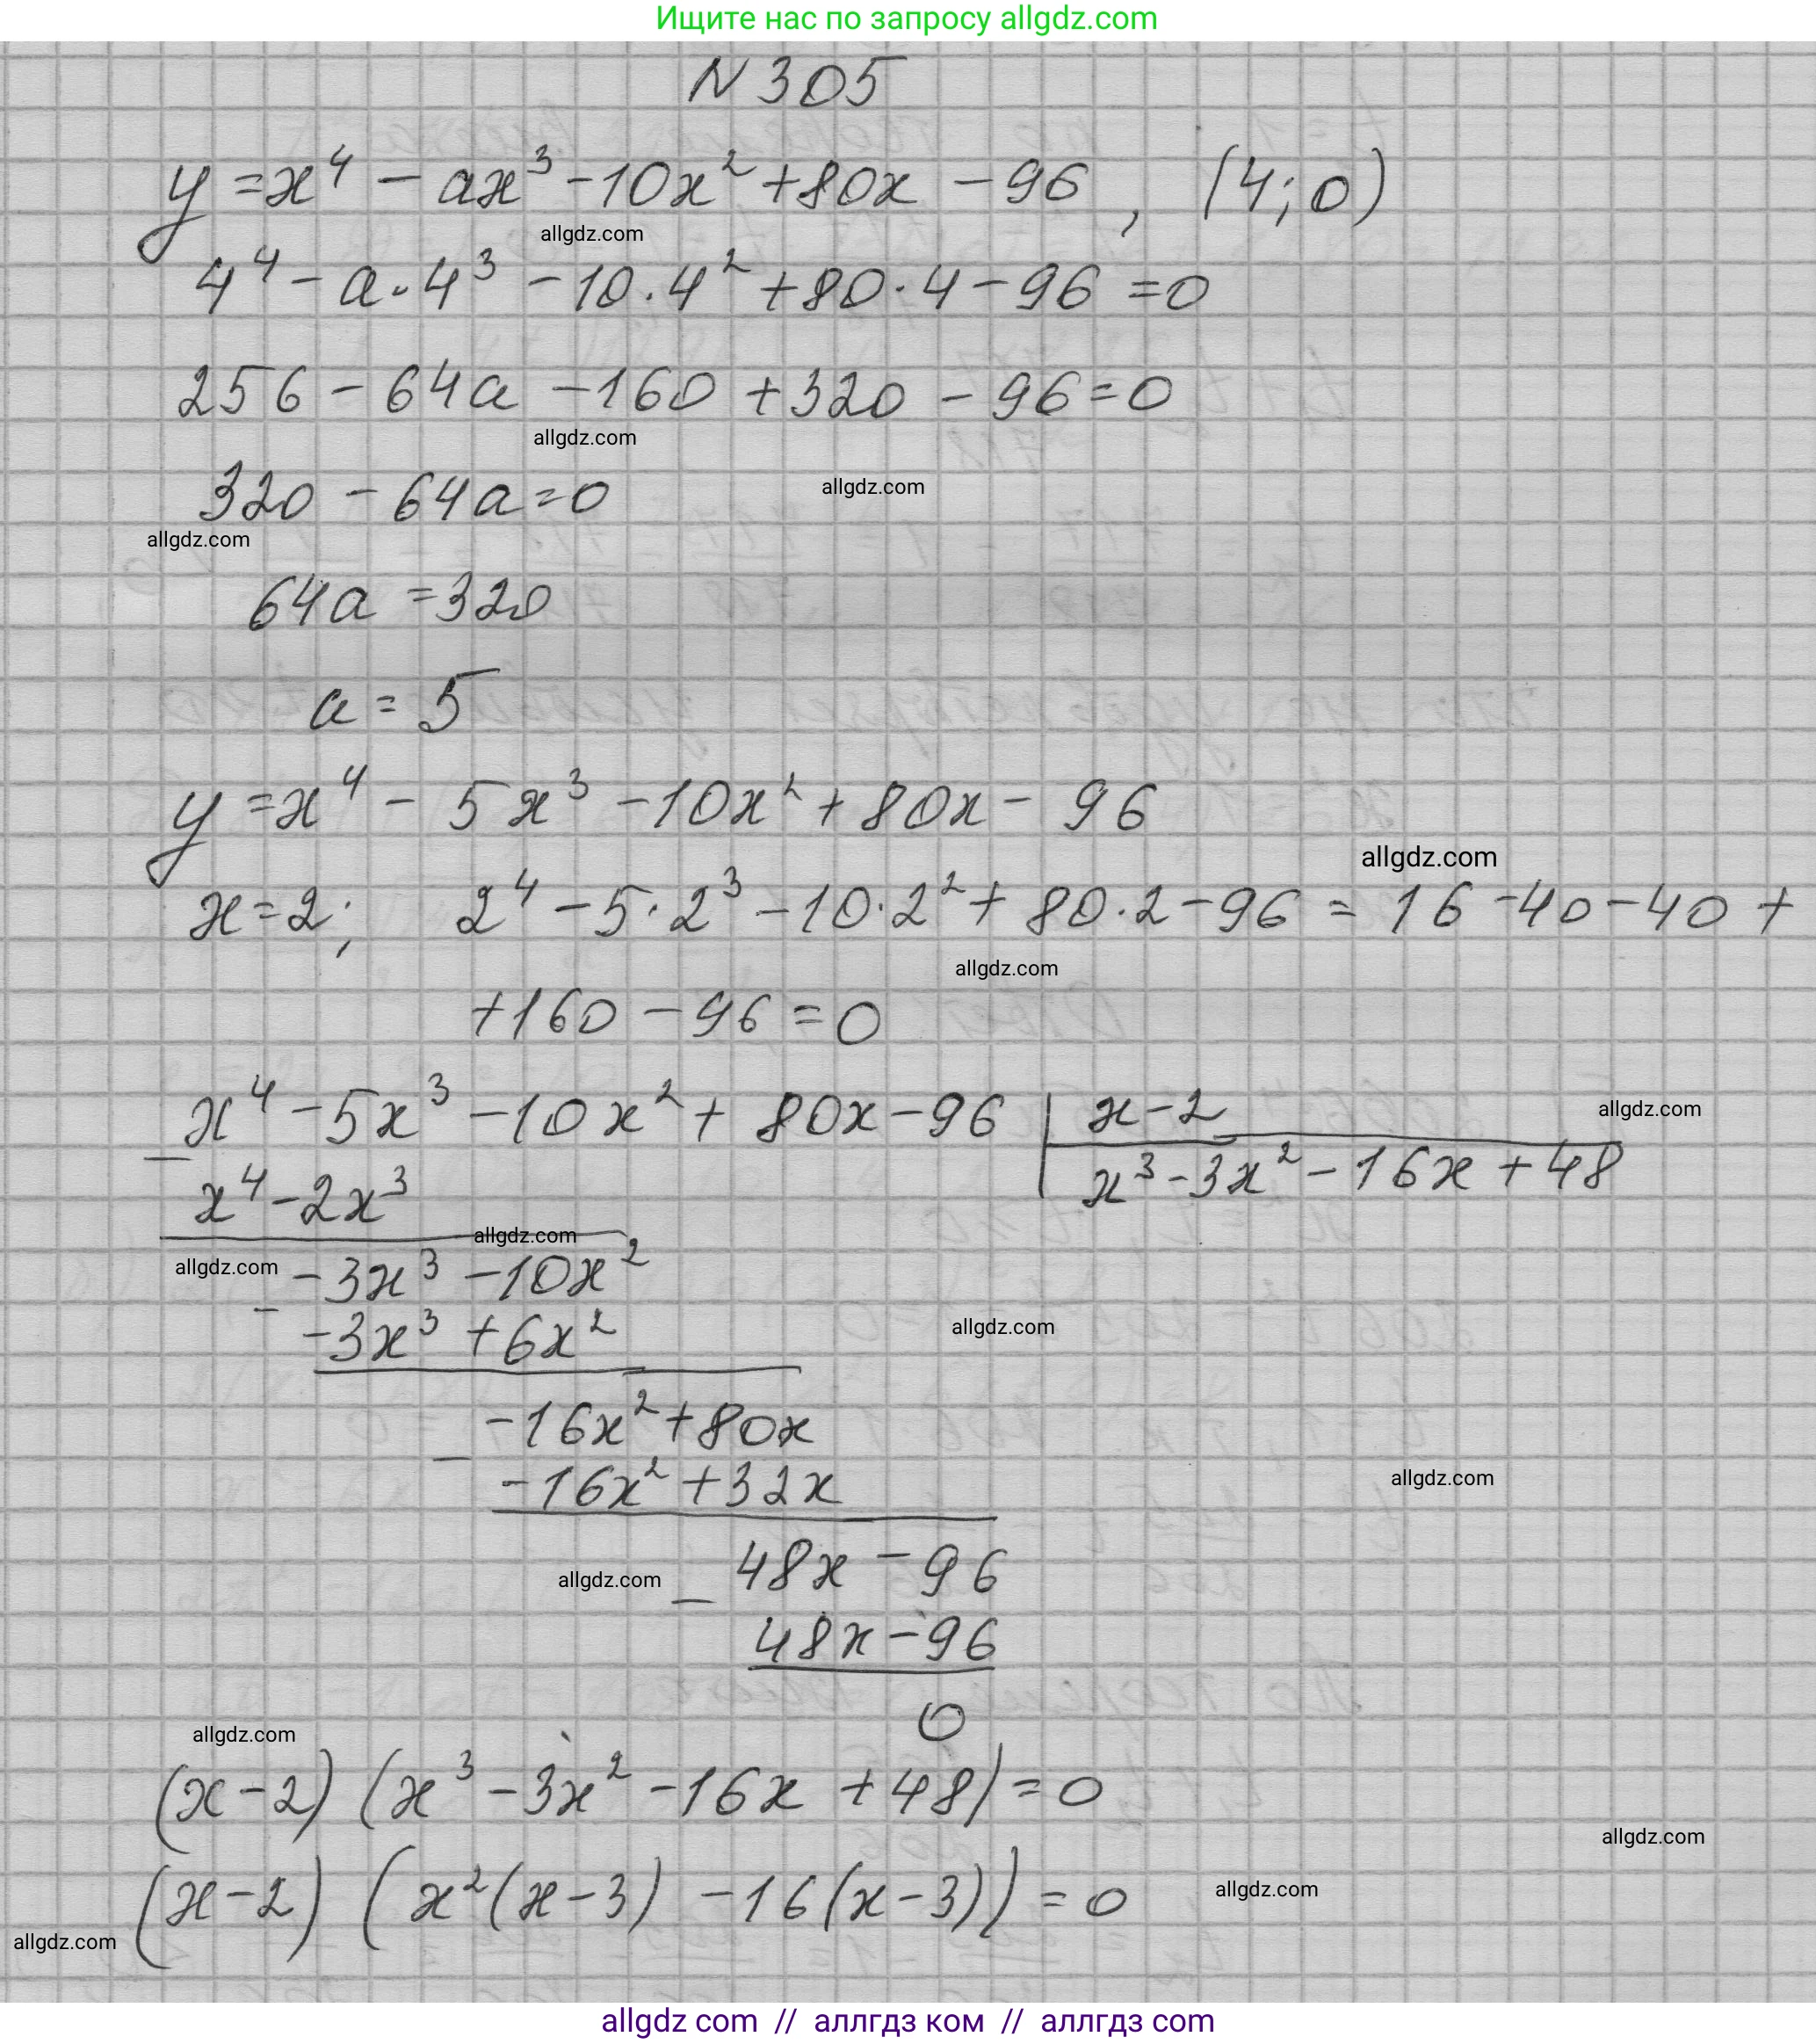 Ищите нас по запросу allgdz.com
N 305
y = x⁴ - ax³ - 10x² + 80x - 96, (4; 0)
allgdz.com
4⁴ - a · 4³ - 10 · 4² + 80 · 4 - 96 = 0
256 - 64a - 160 + 320 - 96 = 0
allgdz.com
allgdz.com
320 - 64a = 0
allgdz.com
64a = 320
a = 5
y = x⁴ - 5x³ - 10x² + 80x - 96
allgdz.com
x = 2; 2⁴ - 5 · 2³ - 10 · 2² + 80 · 2 - 96 = 16 - 40 - 40 +
allgdz.com
+ 160 - 96 = 0
x⁴ - 5x³ - 10x² + 80x - 96 | x - 2
allgdz.com
- x⁴ - 2x³ | x³ - 3x² - 16x + 48
allgdz.com
allgdz.com
-3x³ - 10x²
- -3x³ + 6x²
allgdz.com
-16x² + 80x
- -16x² + 32x
allgdz.com
48x - 96
allgdz.com
- 48x - 96
0
allgdz.com
(x - 2) (x³ - 3x² - 16x + 48) = 0
allgdz.com
(x - 2) (x²(x - 3) - 16(x - 3)) = 0
allgdz.com
allgdz.com
allgdz com // аллгдз ком // аллгдз com